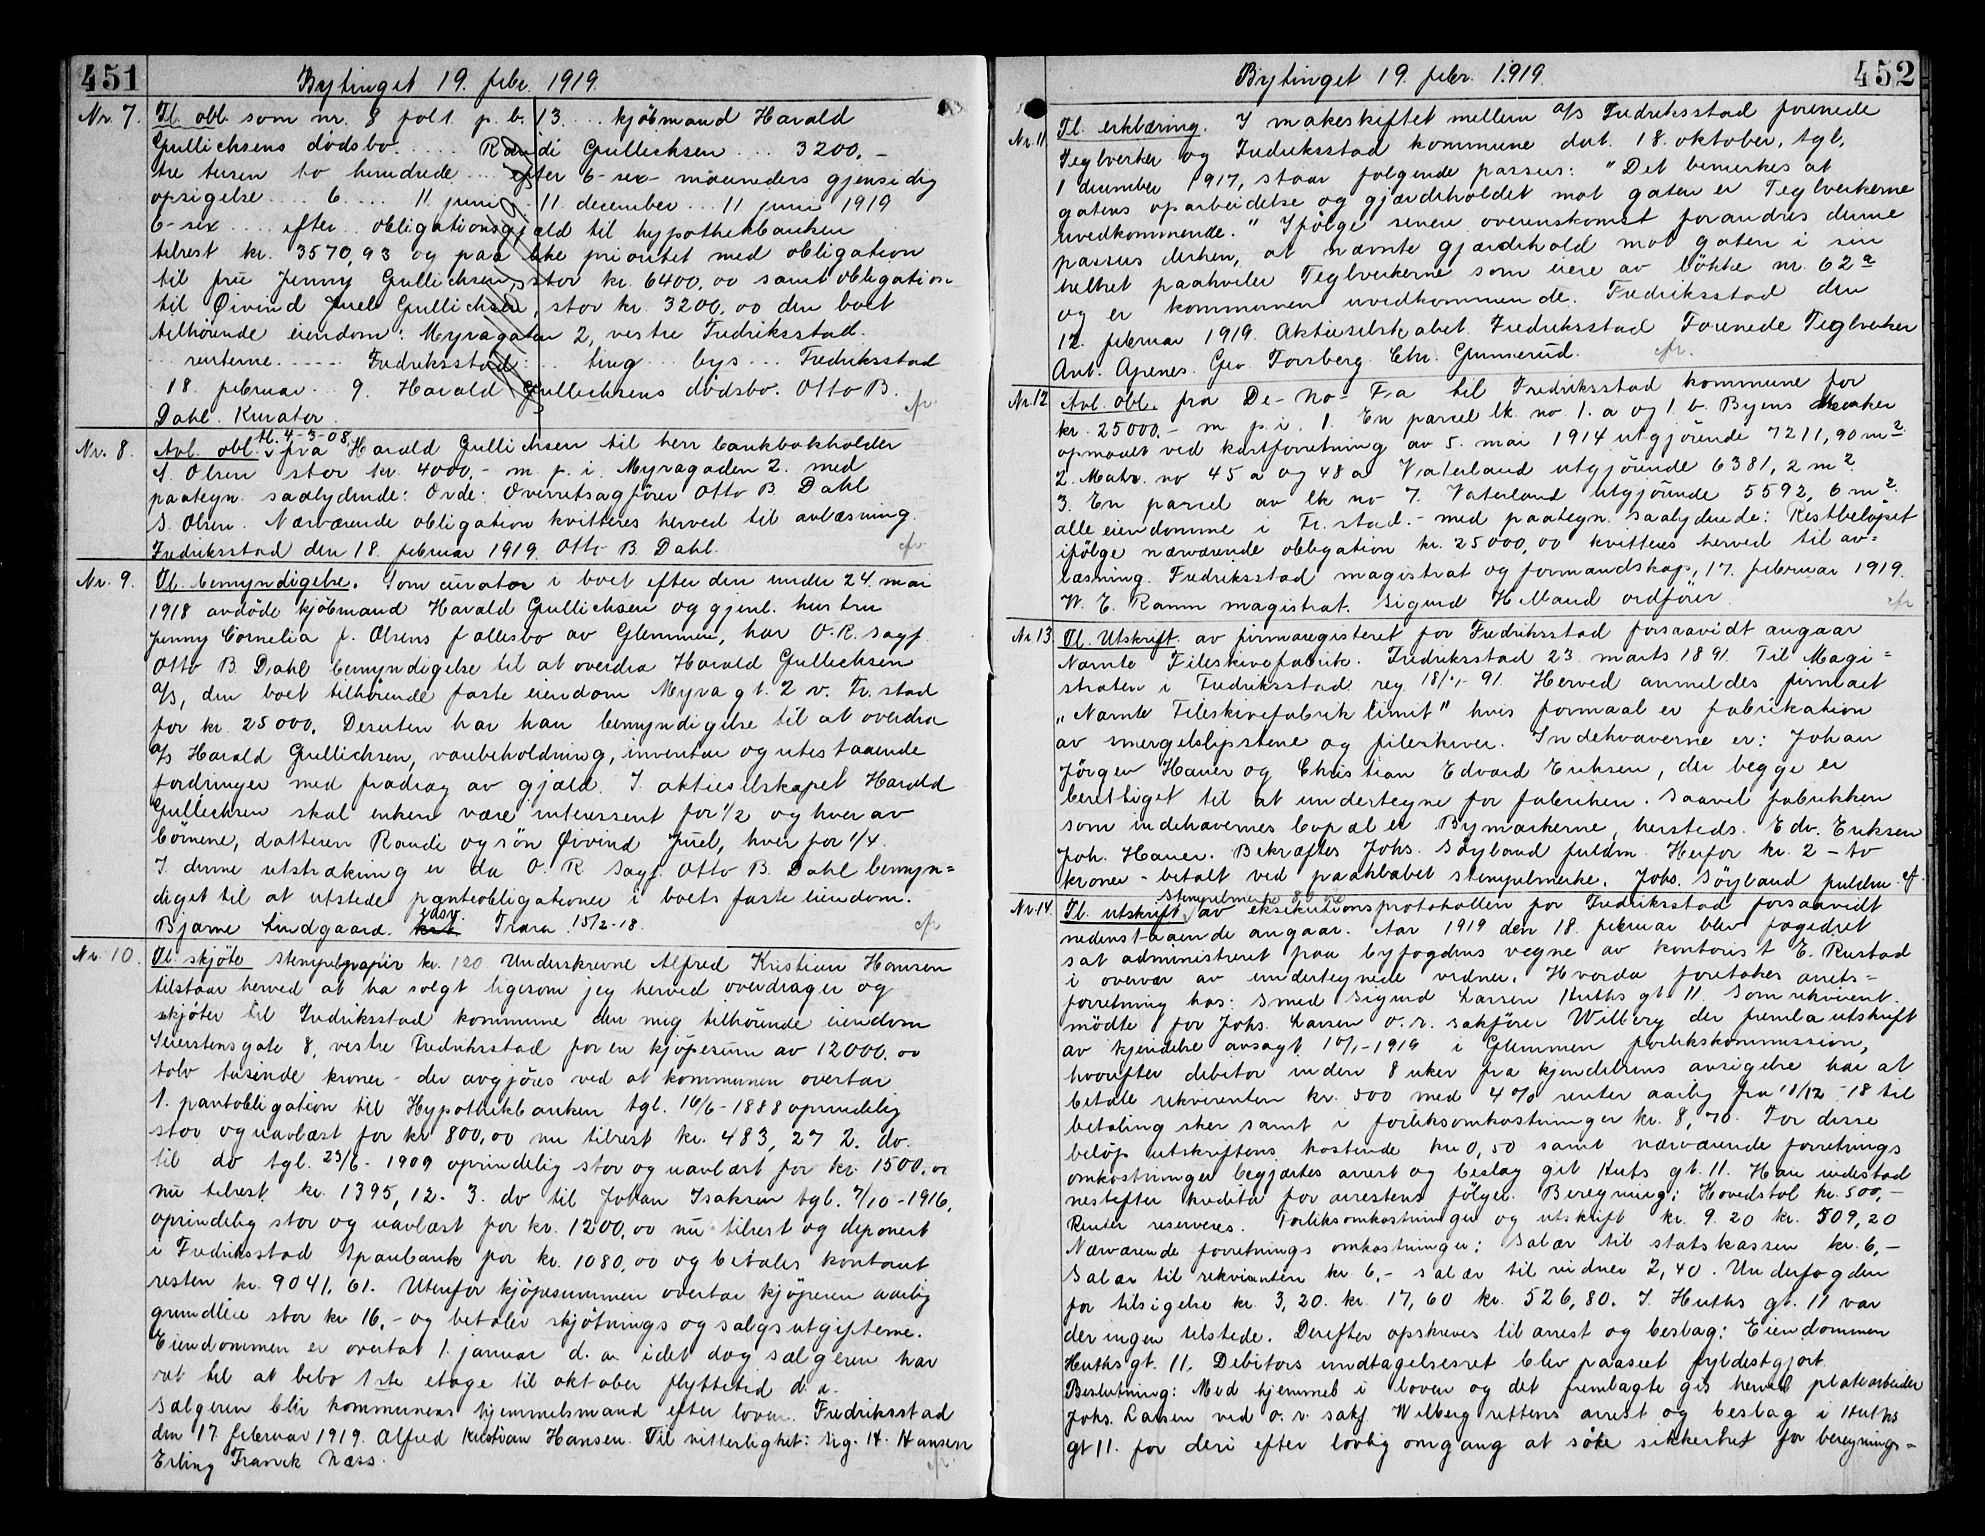 451
Bytinget 19. febr. 1919.
Nr. 7. Tl. obl. som nr. 8 fol 1. p. b. 13 ... kjöbmand Harald
Gullichsens dödsbo. ..... Randi Gullichsen ... 3200,-
tre tusen to hundrede ... efter 6-sex- maaneders gjensidig
opsigelse .... 6 .... 11 juni ... 11 december ... 11 juni 1919
6-sex .... efter obligationsgjæld til hypothekbanken
tilrest kr. 3570,93 og paa like prioritet med obligation
til fru Jenny Gullichsen, stor kr. 6400,00 samt obligation
til Öivind Juel Gullichsen, stor kr. 3200,00 den boet
tilhörende eiendom: Myragaten 2, vestre Fredriksstad.
... renterne ..... Fredriksstad ... ting ... bys ... Fredriksstad
18. februar ... 9. Harald Gullichsens dödsbo. Otto B.
Dahl. Kurator. cfr.
tl. 4-3-08,
Nr. 8. Avl. obl. fra Harald Gullichsen til herr bankbokholder
S. Olsen stor kr. 4000,- m. p. i. Myragaden 2. med
paategn. saalydende: Ovde: Overretsagförer Otto B. Dahl
S. Olsen. Nærværende obligation kvitteres herved til avlæsning.
Fredriksstad den 18. februar 1919. Otto B. Dahl. cfr
Nr. 9. Tl. bemyndigelse. Som curator i boet efter den under 24 mai
1918 avdöde kjöbmand Harald Gullichsen og gjenl. hustru
Jenny Cornelia f. Olsens fællesbo av Glemmen, har O.R. sagf.
Otto B. Dahl bemyndigelse til at overdra Harald Gullichsen
A/S, den boet tilhörende faste eiendom Myragt. 2 v. Fr. stad
for kr. 25000. Desuten har han bemyndigelse til at overdra
A/S Harald Gullichsen, varebeholdning, inventar og utestaaende
fordringer med fradrag av gjæld. I aktieselskapet Harald
Gullichsen skal enken være interessent for 1/2 og hver av
börnene, datteren Randi og sön Öivind Juel, hver for 1/4.
I denne utstrækning er da O. R. sagf. Otto B. Dahl bemyn=
diget til at utstede panteobligationer i boets faste eiendom.
Bjarne Lindgaard. Trara 15/2-18. cfr
Nr. 10. Tl. skjöte stempelpapir kr. 120 Underskrevne Alfred Kristian Hansen
tilstaar herved at ha solgt ligesom jeg herved overdrager og
skjöter til Fredriksstad kommune den mig tilhörende eiendom
Seierstensgate 8, vestre Fredriksstad for en kjöpesum av 12000,00
tolv tusende kroner - der avgjöres ved at kommunen overtar
1. pantobligation til Hypothekbanken tgl. 16/6-1888 oprindelig
stor og uavlæst for kr 800,00 nu tilrest kr. 483,27 2. do.
til do tgl. 23/6-1909 oprindelig stor og uavlæst for kr. 1500,00
nu tilrest kr. 1395,12. 3. do til Johan Isaksen tgl. 7/10-1916,
oprindelig stor og uavlæst for kr. 1200,00 nu tilrest og deponert
i Fredriksstad Sparebank for kr. 1080,00 og betales kontant
resten kr. 9041,61. Utenfor kjöpesummen overtar kjöperen aarlig
grundleie stor kr 16,- og betaler skjötnings og salgsutgifterne.
Eiendommen er overtat 1. januar d. a. idet dog sælgeren har
ret til at bebo 1ste etage til oktober flyttetid d. a.
Sælgeren blir kommunens hjemmelsmand efter loven. Fredriksstad
den 17 februar 1919. Alfred Kristian Hansen. Til vitterlighet: Sig. H. Hansen
Erling Franck Næss. cfr.
452
Bytinget 19. febr. 1919.
Nr. 11 Tl. erklæring. I makeskiftet mellem A/S Fredriksstad forenede
Teglverker og Fredriksstad kommune dat. 18. oktober, tgl.
1 december 1917, staar følgende passus: "Det bemerkes at
gatens oparbeidelse og gjærdeholdet mot gaten er Teglverkerne
uvedkommende." Ifölge senere overenskomst forandres denne
passus derhen, at nævnte gjærdehold mot gaten i sin
helhet paahviler Teglverkerne som eiere av lökke nr. 62a
og er kommunen uvedkommende. Fredriksstad den
12. februar 1919. Aktieselskabet Fredriksstad Forenede Teglverker
Ant. Apenes. Geo Forsberg. Chr. Gunnerud. cfr.
Nr. 12 Avl. obl. fra De-No-Fa til Fredriksstad kommune for
kr. 25000.- m. p. i. 1. En parcel lk. no. 1. a og 1. b. Byens Marker
opmaalt ved kartforretning av 5. mai 1914 utgjörende 7211,90 m2.
2. Matr. no 45 a og 48 a Vaterland utgjörende 6381,2 m2.
3. En parcel av lk no 7. Vaterland utgjörende 5592,6 m2.
alle eiendomme i Fr.stad. - med paategn. saalydende: Restbelöpet
ifölge nærværende obligation kr. 25000,00 kvitteres herved til av=
læsning. Fredriksstad magistrat og formandskap, 17. februar 1919.
W. E. Ramm magistrat. Sigurd H. Maud ordförer cfr
Nr. 13. Tl. Utskrift. av firmaregisteret for Fredriksstad forsaavidt angaar
Namte Fileskivefabrik. Fredriksstad 23 marts 1891. Til Magi=
straten i Fredriksstad reg. 91. Herved anmeldes firmaet
"Namte Fileskivefabrik limit" hvis formaal er fabrikation
av smergelslipstene og fileskiver. Indehaverne er: Johan
Jörgen Hauer og Christian Edvard Eriksen, der begge er
berettiget til at undertegne for fabriken. Saavel fabrikken
som indehavernes bopæl er Bymarkerne, hersteds. Edv. Eriksen
Joh. Hauer. Bekræftes Johs. Söyland fuldm. Herfor kr. 2 - to
kroner - betalt ved paaklæbet stempelmerke. Johs. Söyland fuldm. cf.
Stempelmerke 80 öre
Nr. 14. Tl. utskrift av eksekutionsprotokollen for Fredriksstad forsaavidt
nedenstaaende angaar. Aar 1919 den 18. februar blev fogedret
sat administreret paa byfogdens vegne av kontorist E. Rustad
i overvær av undertegnede vidner. Hvorda foretokes arrest=
forretning hos: Smed Sigurd Larsen Huths gt. 11. Som rekvirent
mödte for Johs. Larsen o. r. sakförer Wilberg der fremla utskrift
av kjendelse avsagt 10/1-1919 i Glemmen forlikskommission,
hvorefter debitor inden 8 uker fra kjendelsens avsigelse har at
betale rekvirenten kr. 500 med 4 % renter aarlig fra 11/12-18 til
betaling sker samt i forliksomkostninger kr. 8,70. For disse
belöp utskriftens kostende kr. 0,50 samt nærværende forretnings
omkostninger begjærtes arrest og beslag git Huts gt. 11. Han indestod
nestefter kreditor for arrestens fölger. Beregning: Hovedstol kr. 500,-
Renter reserveres. Forliksomkostninger og utskrift kr. 9.20 kr. 509,20
Nærværende forretnings omkostninger: Salær til statskassen kr. 6,-
Salær til rekvirenten kr 6,- salær til vidner 2,40. Underfogden
for tilsigelse kr. 3,20. kr. 17,60 kr. 526,80. I. Huths gt. 11 var
der ingen tilstede. Derefter opskreves til arrest og beslag: Eiendommen
Huthsgt. 11. Debitors undtagelsesret blev paaseet fyldestgjort.
Beslutning: Med hjemmel i loven og det fremlagte gis herved platearbeider
Johs. Larsen ved o. r. sakf. Wilberg rettens arrest og beslag i Huths
gt 11. for deri efter lovlig omgang at söke sikkerhet for beregnings=